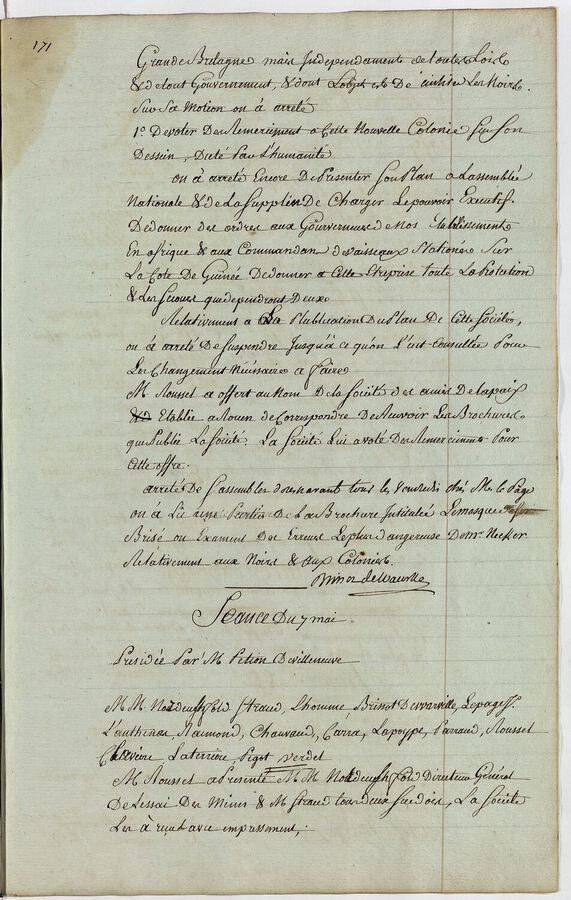 171
Grande Bretagne mais Independament de toutes Loix
& de tout Gouvernement, & dont L'objet est De civiliser Les Noirs.
Sur Sa Motion on à arreté
1º. De voter Des Remerciment a Cette Nouvelle Colonie sur Son
Dessein, Dicté Par L'humanité
on à arreté Encore De Presenter Son Plan a Lassemblée
Nationale & de La Supplier De Charger Le pouvoir Executif.
De donner des ordres aux Gouverneurs de Nos Etablissements
En afrique & aux Commandans de vaisseaux Stationés Sur
La Cote De Guinée De donner a Cette Etreprise Toute La Protection
& Les Secours qui dependront Deux
Relativement a La Plublication Du Plan De Cette Société,
on à arreté De Suspendre Jusqu'à ce qu'on L'ait Consultée Pour
Les Changement Necéssaire a faire
M. Rousset a offert au Nom De la Société des amis De la paix
Etablie a Rouen de Correspondre De Recevoir Les Brochures
que Publie La Société. La Société Lui a voté Des Remerciments Pour
Cette offre.
arreté De Sassembler dorsnavant tous les Vendredis chés Mr. le Page
on à Lu une Partie De La Brochure Intitulée Le masque
Brisé ou Examens Des Erreurs Le plus dangereuse De Mr. Necker
Relativement aux Noirs & aux Colonies.
Brissot de Warville
Seance Du 7 mai
Presidée Par M Petion De villeneuve
M M Stroud, Lhomme, Brissot De warville, Lepage,
Lanthenas, Raimond, Chauvaud, Carra, Lapoype, Rousset
Claviere, Laterriere, Pigot, verdet
M Rousset a Presenté M M Directeur Général
De Lessai Des Mines & M Stroud tous deux Suedois, La Société
Les à reçu avec empressement,